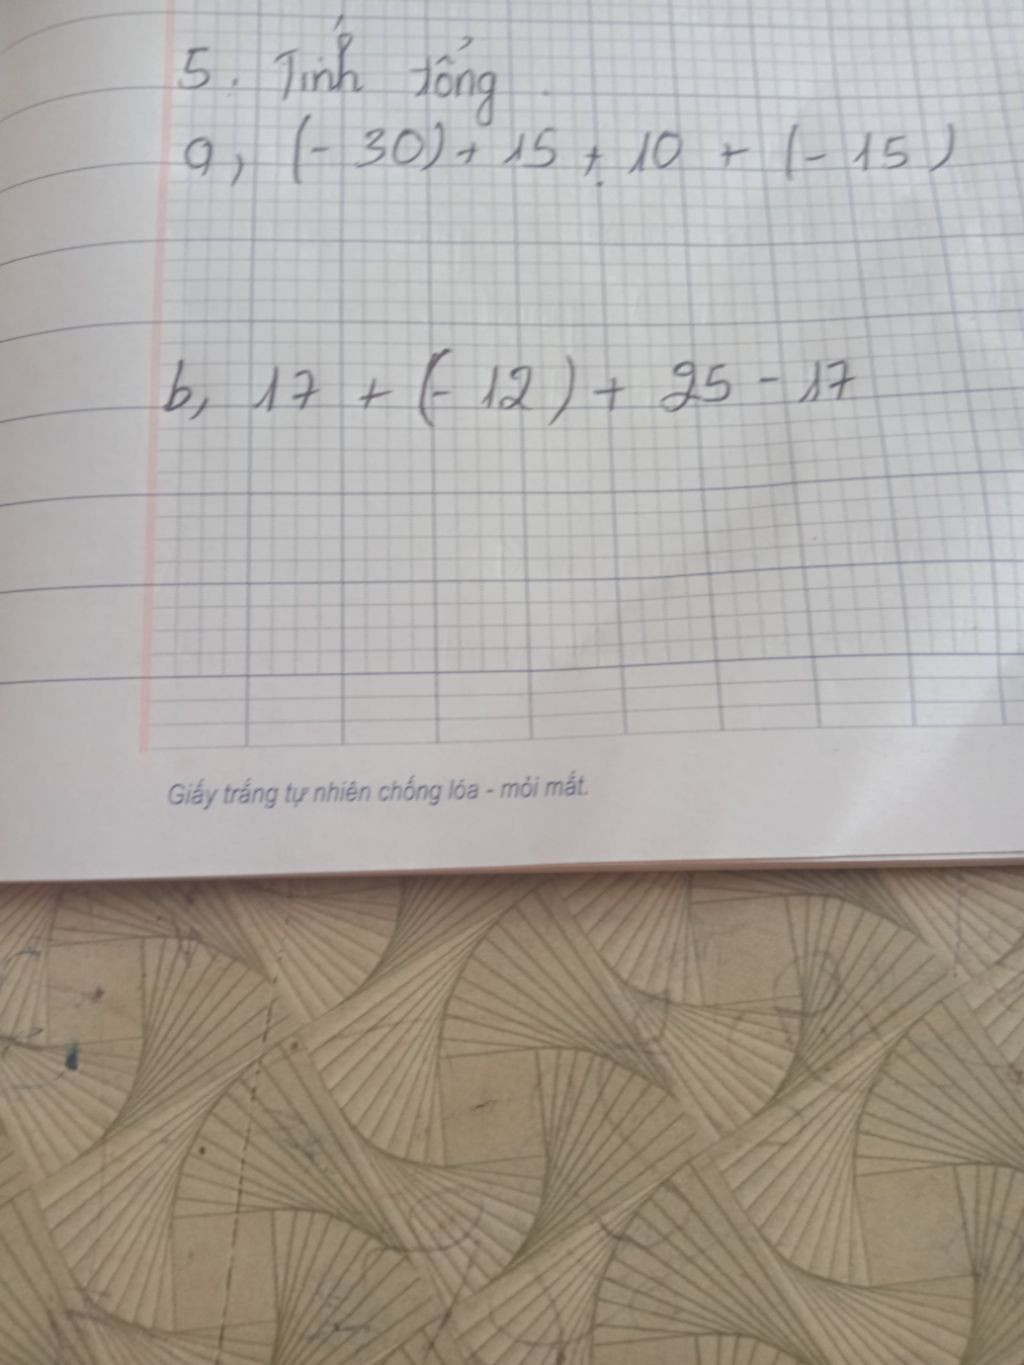 5. Tính tổng.
a, (- 30) + 15 + 10 + (- 15)
b, 17 + (- 12) + 25 - 17
Giấy trắng tự nhiên chống lóa - mỏi mắt.